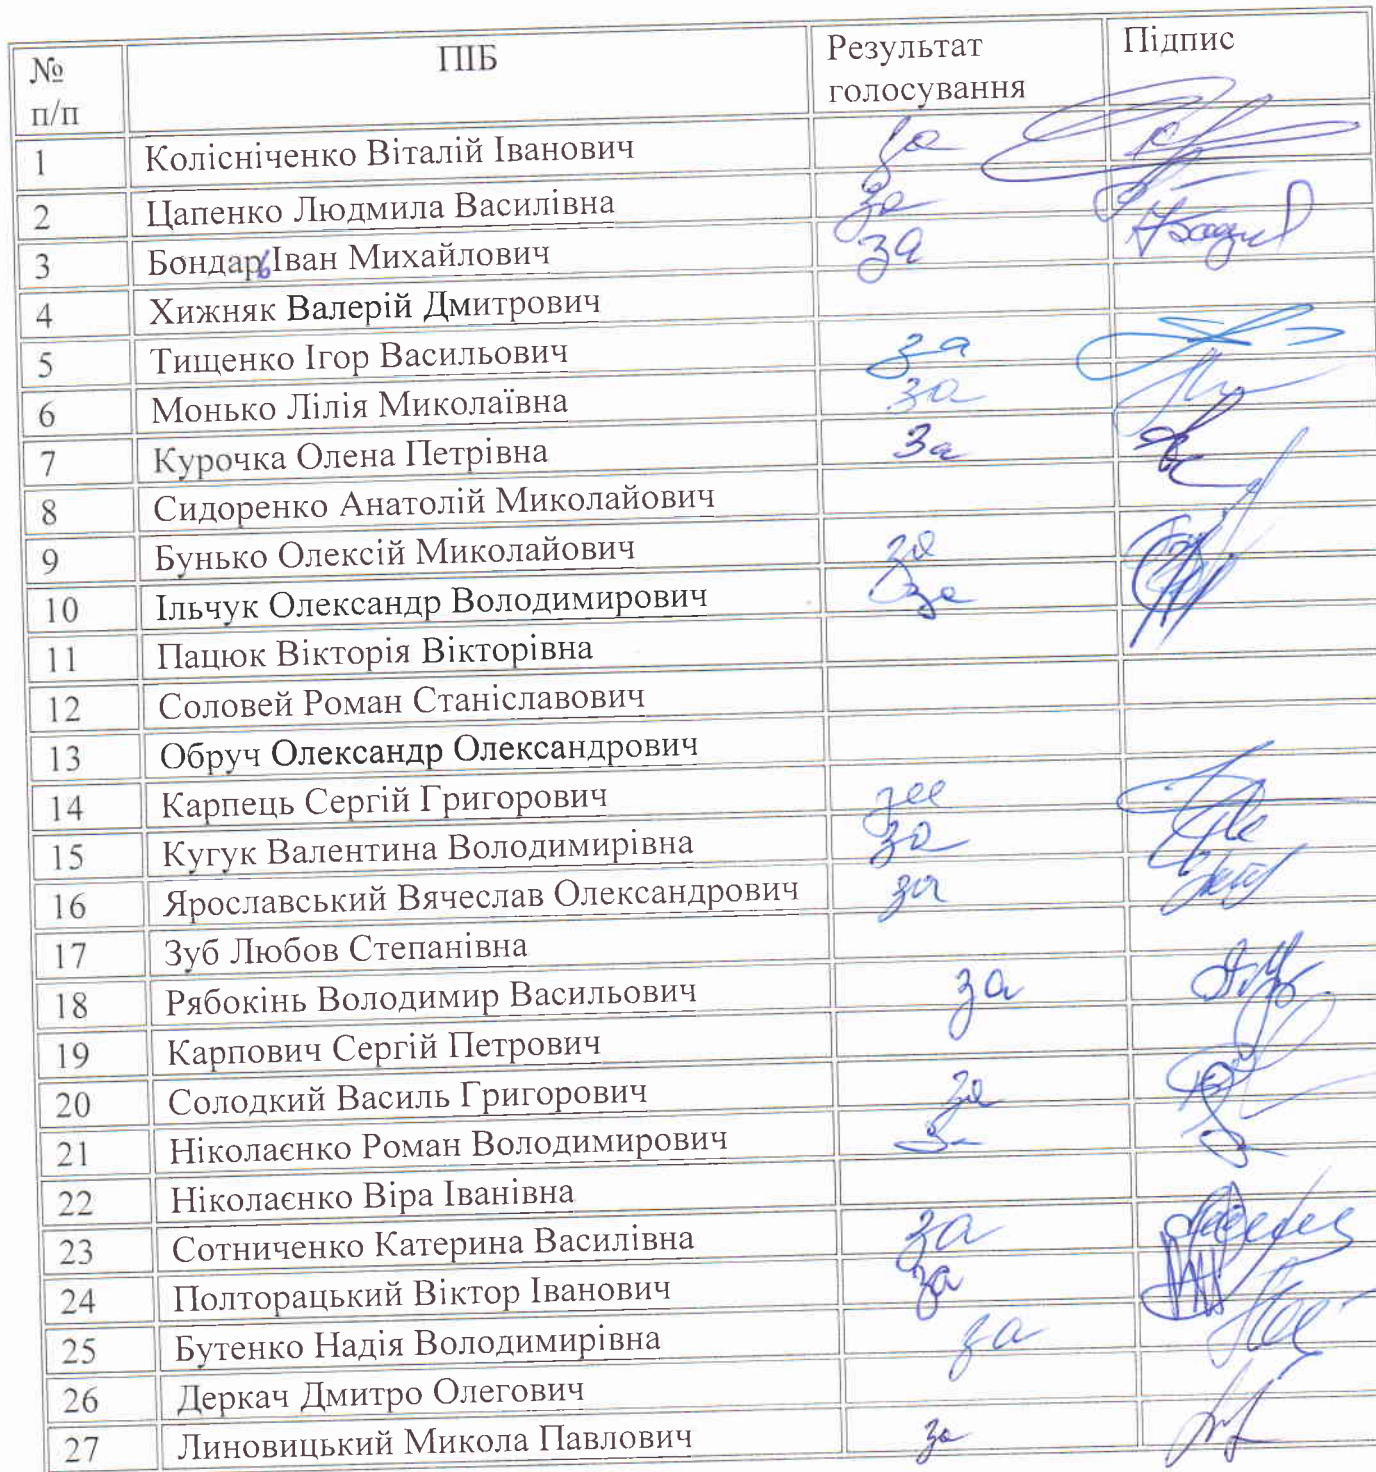 № п/п ПІБ Результат голосування Підпис
1 Колісніченко Віталій Іванович за
2 Цапенко Людмила Василівна за
3 Бондарь Іван Михайлович за
4 Хижняк Валерій Дмитрович
5 Тищенко Ігор Васильович за
6 Монько Лілія Миколаївна за
7 Курочка Олена Петрівна За
8 Сидоренко Анатолій Миколайович
9 Бунько Олексій Миколайович за
10 Ільчук Олександр Володимирович за
11 Пацюк Вікторія Вікторівна
12 Соловей Роман Станіславович
13 Обруч Олександр Олександрович
14 Карпець Сергій Григорович за
15 Кугук Валентина Володимирівна за
16 Ярославський Вячеслав Олександрович за
17 Зуб Любов Степанівна
18 Рябокінь Володимир Васильович за
19 Карпович Сергій Петрович
20 Солодкий Василь Григорович за
21 Ніколаєнко Роман Володимирович за
22 Ніколаєнко Віра Іванівна
23 Сотниченко Катерина Василівна за
24 Полторацький Віктор Іванович за
25 Бутенко Надія Володимирівна за
26 Деркач Дмитро Олегович
27 Линовицький Микола Павлович за